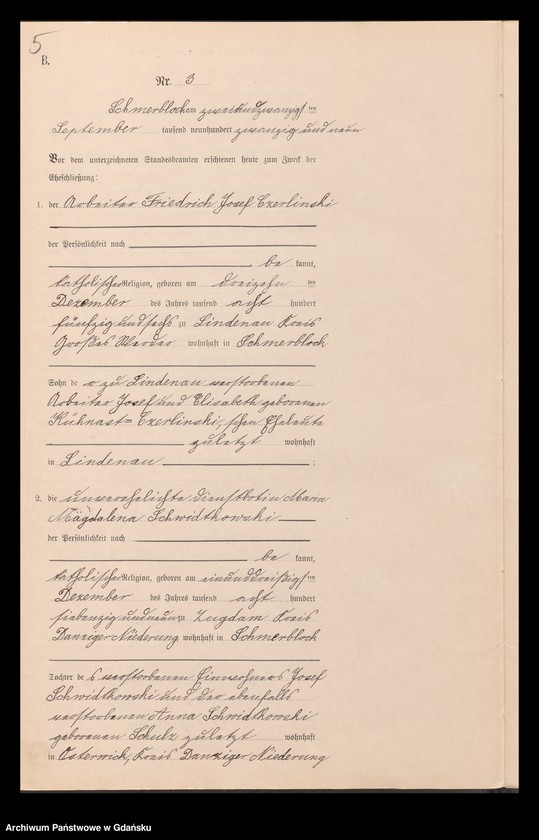 5
B.
Nr. 3
Schmerblock am zweiundzwanzigsten
September tausend neunhundert zwanzig und neun
Vor dem unterzeichneten Standesbeamten erschienen heute zum Zweck der
Eheschließung:
1. der Arbeiter Friedrich Josef Czerlinski
der Persönlichkeit nach
be kannt,
katholischer Religion, geboren am dreizehn ten
Dezember des Jahres tausend acht hundert
fünfzig und sechs zu Lindenau Kreis
Großes Werder wohnhaft in Schmerblock
Sohn de r zu Lindenau verstorbenen
Arbeiter Josef und Elisabeth geborenen
Kühnast= Czerlinski'schen Eheleute
zuletzt wohnhaft
in Lindenau ;
2. die unverehelichte Dienstbotin Maria
Magdalena Schwidtkowski
der Persönlichkeit nach
be kannt,
katholischer Religion, geboren am einunddreißigsten
Dezember des Jahres tausend acht hundert
siebenzig und neun zu Zugdam Kreis
Danziger Niederung wohnhaft in Schmerblock
Tochter de s verstorbenen Einwohners Josef
Schwidtkowski und der ebenfalls
verstorbenen Anna Schwidtkowski
geborenen Schulz zuletzt wohnhaft
in Osterwick, Kreis Danziger Niederung
Archiwum Państwowe w Gdańsku